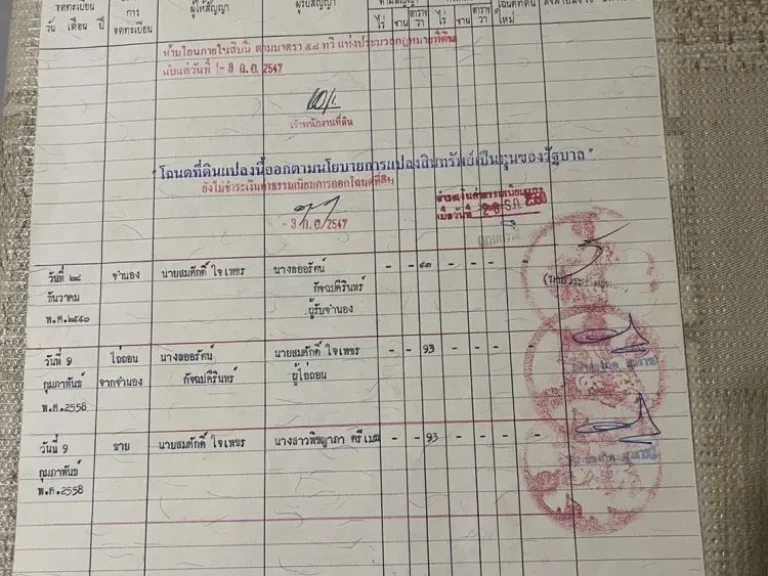 จดทะเบียน การ ผู้ให้สัญญา ผู้รับสัญญา ตามสัญญา
วัน เดือน ปี จดทะเบียน ไร่ งาน ตารางวา ไร่ งาน ตารางวา โฉนดที่ดินใหม่
ห้ามโอนภายในสิบปี ตามมาตรา ๕๘ ทวิ แห่งประมวลกฎหมายที่ดิน
นับแต่วันที่ - 3 ก.ย. 2547
เจ้าพนักงานที่ดิน
"โฉนดที่ดินแปลงนี้ออกตามนโยบายการแปลงสินทรัพย์เป็นทุนของรัฐบาล"
ยังไม่ชำระเงินค่าธรรมเนียมการออกโฉนดที่ดิน
- 3 ก.ย. 2547
เมื่อวันที่ 28 ธ.ค. 2550
วันที่ ๒๘ จำนอง นายสมศักดิ์ ใจเพชร นางลออรัตน์ - - ๙๓ - - -
ธันวาคม
พ.ศ.๒๕๕๐ ผู้รับจำนอง
วันที่ 9 ไถ่ถอน นางลออรัตน์ นายสมศักดิ์ ใจเพชร - - 93 - - -
กุมภาพันธ์ จากจำนอง ผู้ไถ่ถอน
พ.ศ.2558
วันที่ 9 ขาย นายสมศักดิ์ ใจเพชร นางสาวพิชญาภา - - 93 - - - -
กุมภาพันธ์
พ.ศ.2558